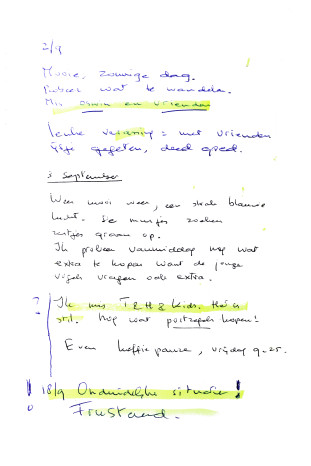 2/9
Mooie, zonnige dag.
Probeer wat te wandelen.
Mis en vrienden
Leuke verjaring = met vrienden
fijn gegeten, deed goed.
3 September
Weer mooi weer, een strak blauwe
lucht. De musjes zoeken
zaadjes graan op.
Ik probeer vanmiddag nog wat
extra te kopen want de jonge
vogels vragen ook extra.
? Ik mis T & H & kids. Het is
stil. Nog wat postzegels kopen!
Even koffiepauze, vrijdag 9.25.
! 18/9 Onduidelijke situatie!
Frustrerend.